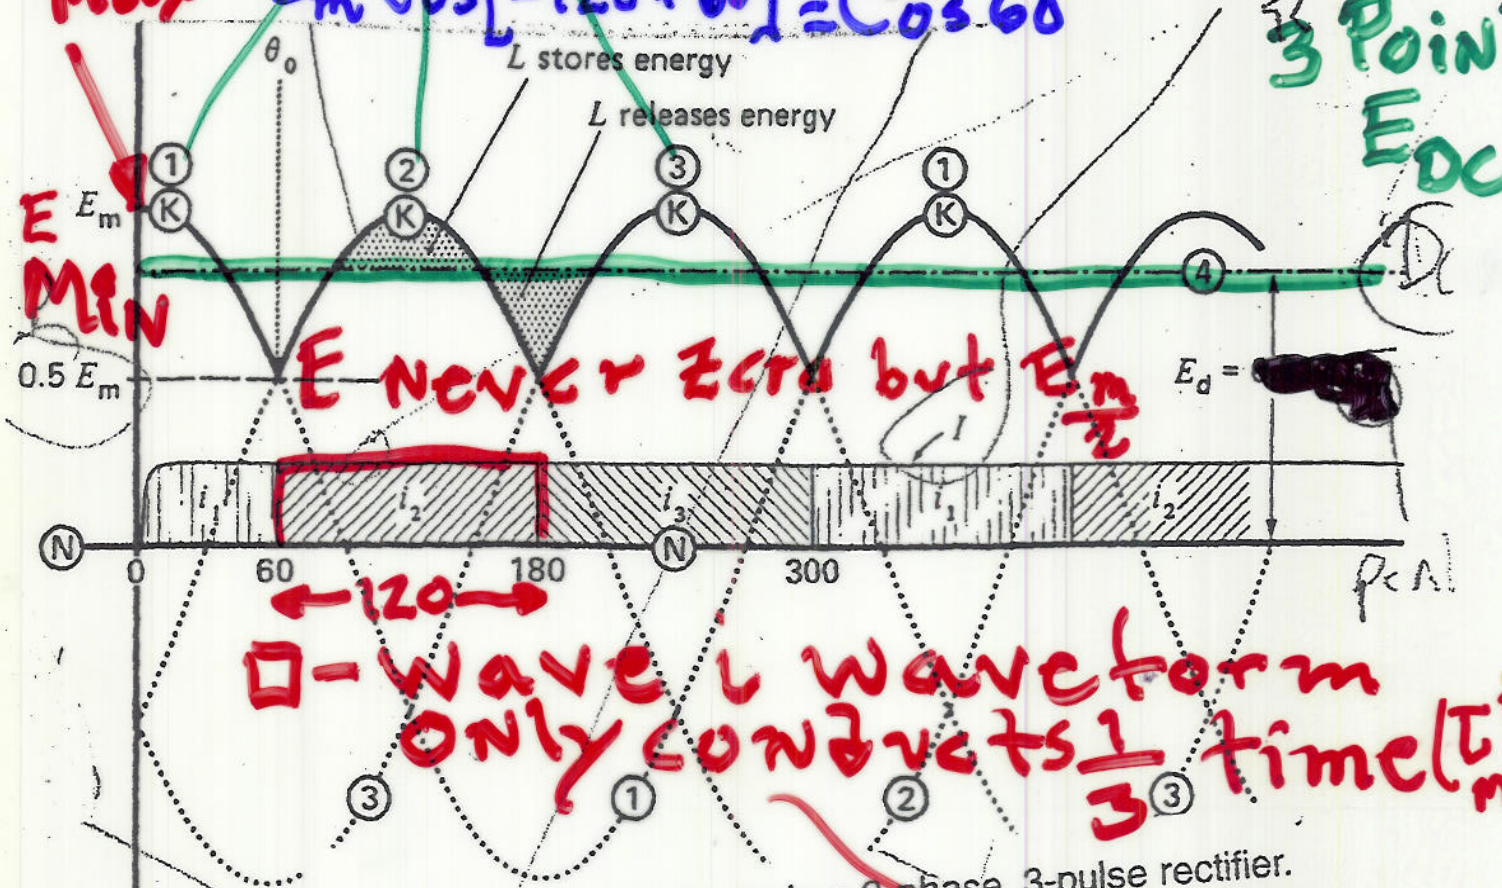 Cos[-120+60] = Cos 60
θ₀
L stores energy
3 Poin
L releases energy
E DC
1 2 3 1
E
MiN
Eₘ K K K K
4
0.5 Eₘ
E Never Zero but Eₘ/2
E_d =
I
i₂ i₃ i₁ i₂
N N
0 60 180 300
120
□-wave i waveform
only conducts 1/3 time(
3 1 2 3
phase, 3-pulse rectifier.